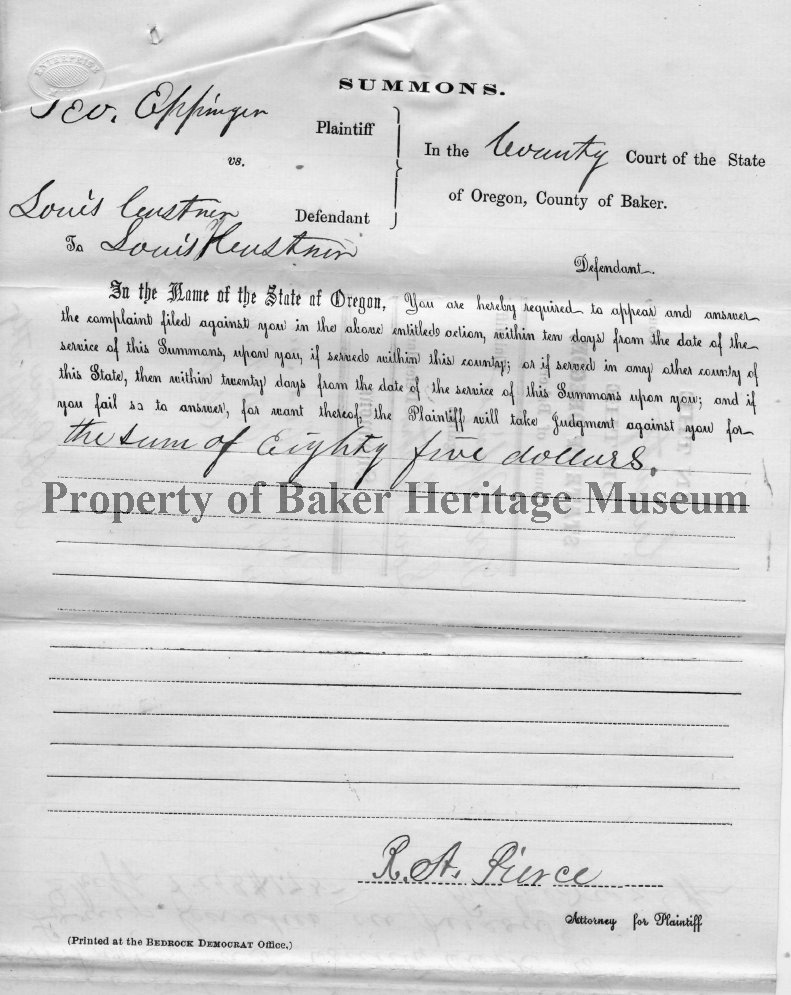 ENTERPRISE
SUMMONS.
Geo. Eppinger
Plaintiff
vs.
In the County Court of the State
of Oregon, County of Baker.
Louis
Defendant
To Louis
Defendant.
In the Name of the State of Oregon, You are hereby required to appear and answer
the complaint filed against you in the above entitled action, within ten days from the date of the
service of this Summons, upon you, if served within this county; or if served in any other county of
this State, then within twenty days from the date of the service of this Summons upon you; and if
you fail so to answer, for want thereof, the Plaintiff will take Judgment against you for
the sum of Eighty five dollars.
Property of Baker Heritage Museum
R. A. Pierce
Attorney for Plaintiff
(Printed at the BEDROCK DEMOCRAT Office.)